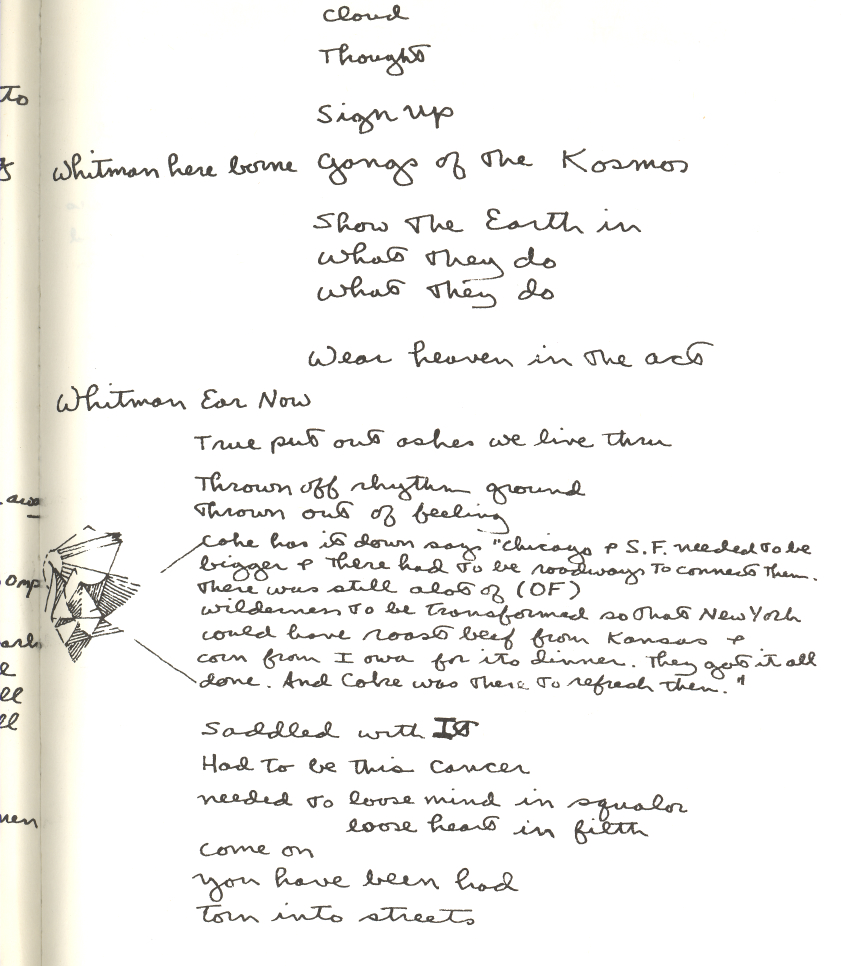 cloud
Thought
to
Sign Up
Whitman here borne Gongs of the Kosmos
Show The Earth in
what they do
what they do
Wear heaven in the act
Whitman Ear Now
True put out ashes we live thru
Thrown off rhythm ground
Thrown out of feeling
Coke has it down says "Chicago & S.F. needed to be
bigger & there had to be roadways to connect them.
There was still alot of (OF)
wilderness to be transformed so that New York
could have roast beef from Kansas &
corn from Iowa for its dinner. They got it all
done. And Coke was there to refresh them."
Saddled with It
Had to be this cancer
needed to loose mind in squalor
loose heart in filth
come on
you have been had
torn into streets